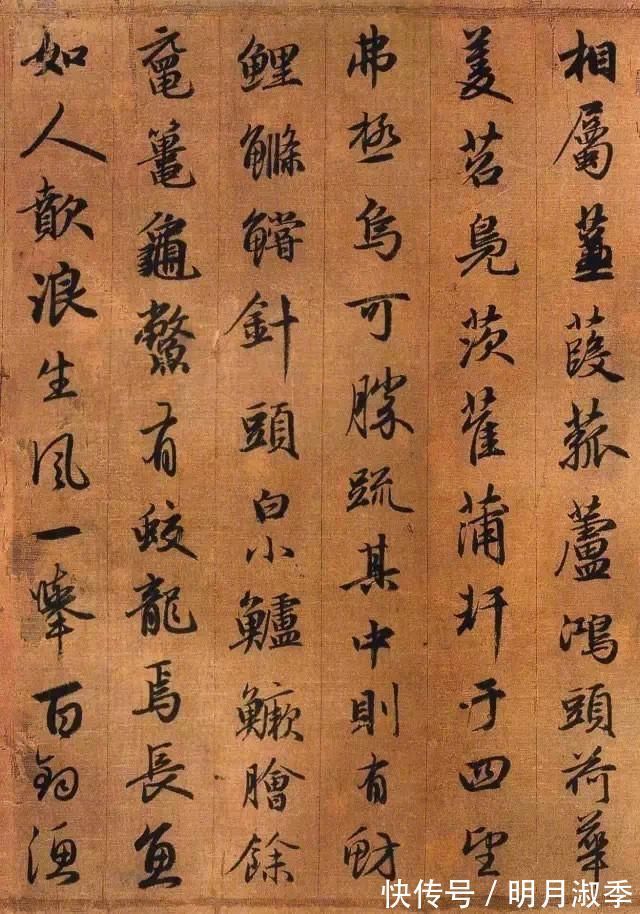 相屬蒹葭菰蘆鴻頭荷華
菱苕鳧茨萑蒲軒于四望
弗極烏可勝疏其中則有魴
鯉鰷鱨針頭白小鱸鱖膾餘
黿鼉龜鱉有鮫龍焉長魚
如人歕浪生風一舉百鈞漁
快传号/明月淑季